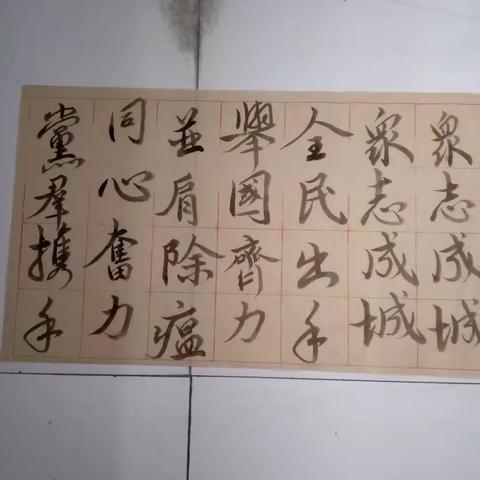 衆志成城
衆志成城
全民出手
舉國齊力
並肩除瘟
同心奮力
黨羣攜手